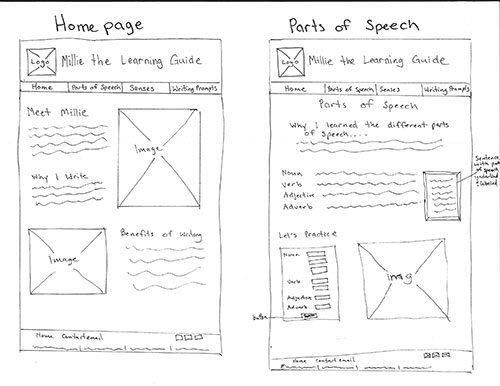 Home page
Logo
Millie the Learning Guide
Home
Parts of Speech
Senses
Writing Prompts
Meet Millie
Image
Why I Write
Image
Benefits of Writing
Home Contact email
Parts of Speech
Logo
Millie the Learning Guide
Home
Parts of Speech
Senses
Writing Prompts
Parts of Speech
Why I learned the different parts
of Speech....
Noun
Verb
Adjective
Adverb
Sentence
with part
of speech
labeled
Let's Practice
Noun
Verb
Adjective
Adverb
button
Home Contact email